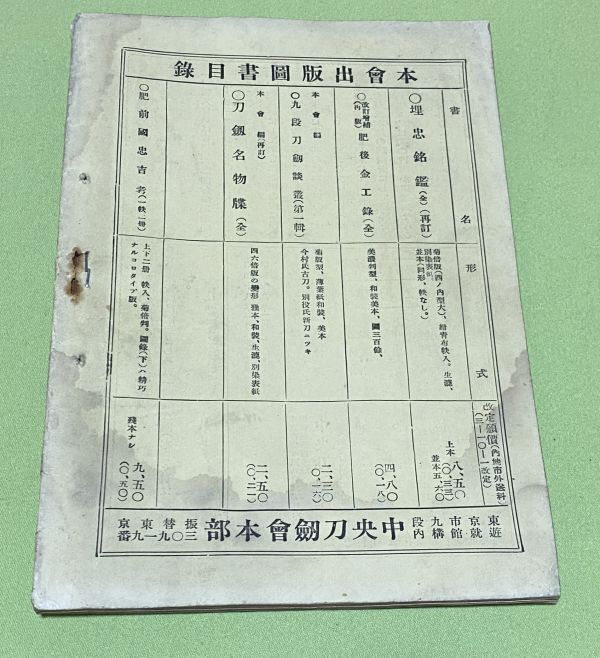 本會出版圖書目錄
書名
形式
改定頒價
(內地市外送料)
○埋忠銘鑑(全)(再訂)
菊倍版(四ノ內型大)、紺青布帙入。生漉、
別染表紙
並本(同形、帙なし。)
上本 八、五〇
(〇、三三)
並本五、六〇
○改訂增補
(再版)
肥後金工錄(全)
美濃判型、和裝美本、圖三百餘、
四、八〇
(〇、一八)
本會編
○九段刀劍談叢(第一輯)
菊版型、薄葉紙和裝、美本
今村氏古刀。別役氏新刀ニツキ
二、三〇
(〇、一六)
本會編(再訂)
○刀劍名物牒(全)
四六倍版の變形 殘本、和裝、生漉、別染表紙
二、五〇
(〇、二一)
○肥前國忠吉考(一帙二冊)
上下二冊 帙入、菊倍判。圖錄(下)ハ精巧
ナルコロタイプ版。
殘本ナシ
九、五〇
(〇、五〇)
東京市九段
遊就館構內
中央刀劍會本部
振替東京
三〇九一九番